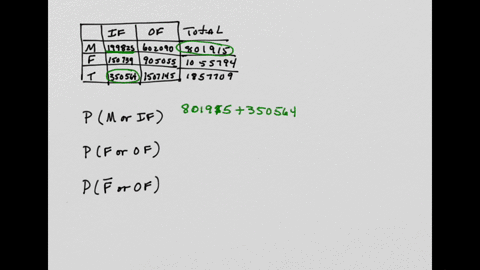 IF OF TOTAL
M 199825 602090 801915
F 150739 905055 1055794
T 350564 1507145 1857709
P (M or IF) 801915 + 350564
P (F or OF)
P (F̅ or OF)